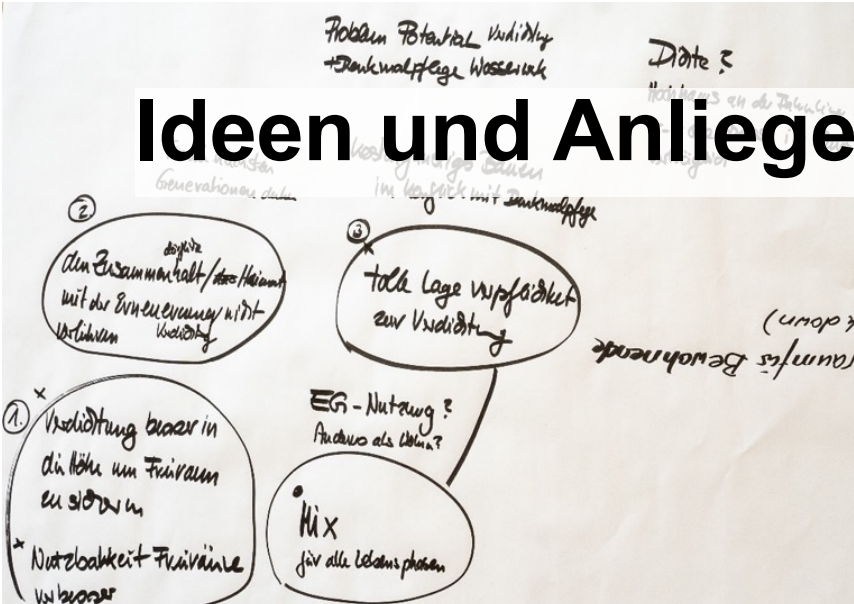 Problem Potential Verdichtung
+Denkmalpflege Wasserwerk
Dichte?
Hochhaus an der Bahnlinie
Ideen und Anliege
kostengünstiges Bauen
nächsten
Generationen
im Konflikt mit Denkmalpflege
2.
den Zusammenhalt / Heimat
mit der Erneuerung nicht
verlieren Verdichtung
3
tolle Lage verpflichtet
zur Verdichtung
raum für Bewohnende
down)
EG-Nutzung?
Anders als Wohn?
1.
Verdichtung besser in
die Höhe um Freiraum
zu sichern
Nutzbarkeit Freiräume
verbessern
Mix
für alle Lebensphasen